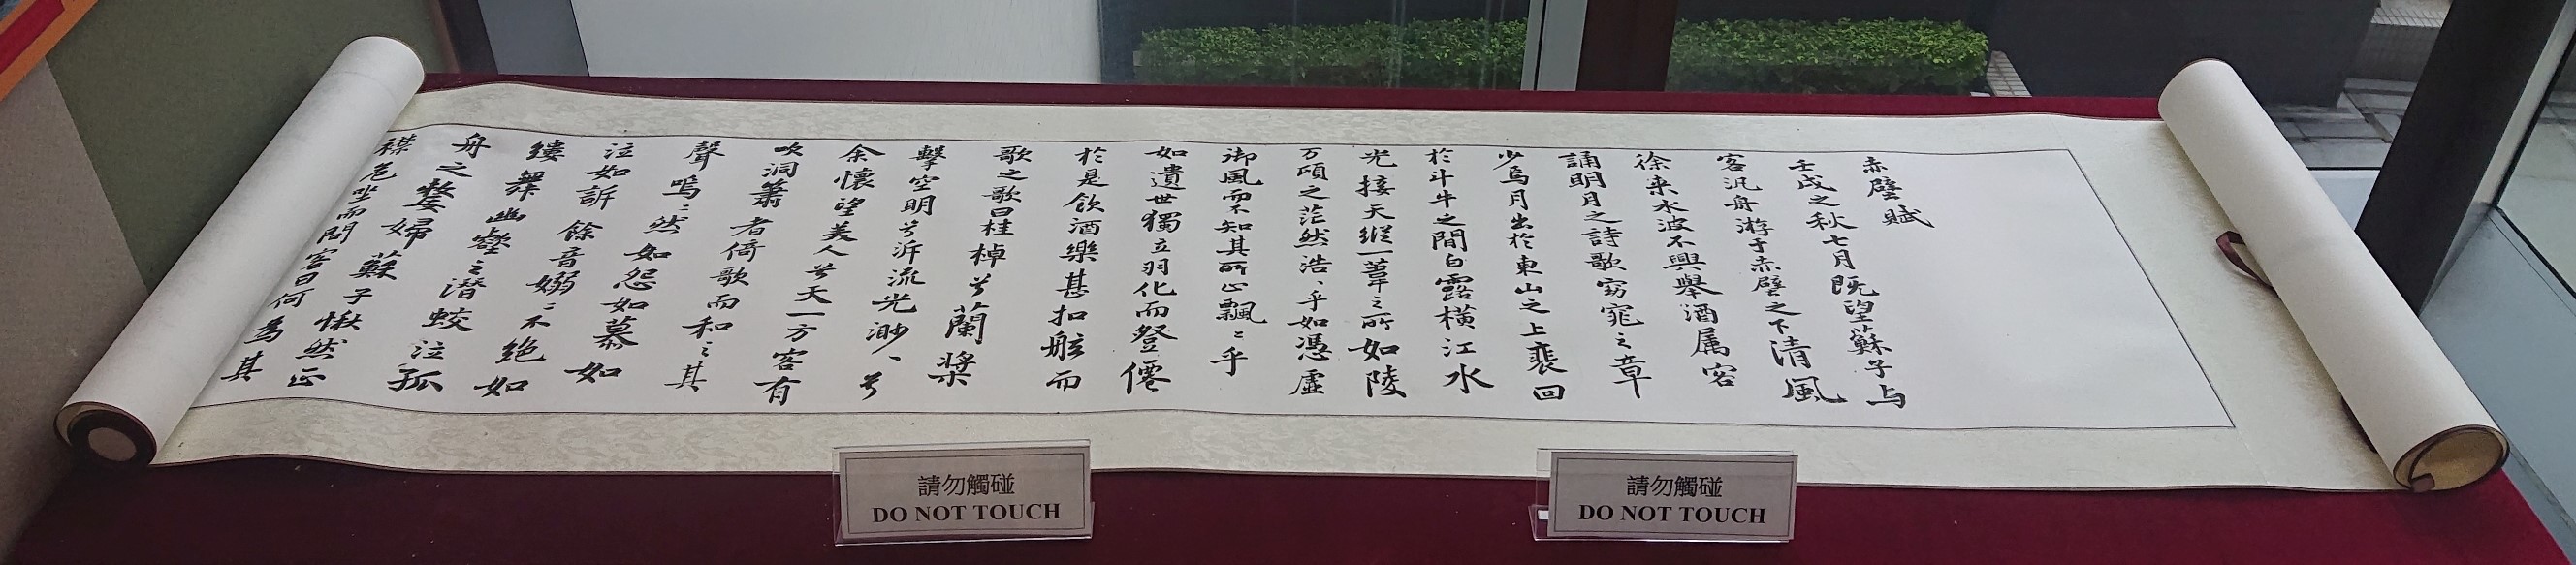 赤壁賦
壬戌之秋七月既望蘇子与
客汎舟游于赤壁之下清風
徐来水波不興舉酒属客
誦明月之詩歌窈窕之章
少焉月出於東山之上裴回
於斗牛之間白露橫江水
光接天縱一葦之所如陵
万頃之茫然浩、乎如憑虛
御風而不知其所止飄〻乎
如遺世獨立羽化而登僊
於是飲酒樂甚扣舷而
歌之歌曰桂棹兮蘭槳
擊空明兮泝流光渺、兮
余懷望美人兮天一方客有
吹洞簫者倚歌而和之其
聲嗚〻然如怨如慕如
泣如訴餘音嫋〻不绝如
縷舞幽壑之潛蛟泣孤
舟之嫠婦蘇子愀然正
襟危坐而問客曰何為其
請勿觸碰
DO NOT TOUCH
請勿觸碰
DO NOT TOUCH